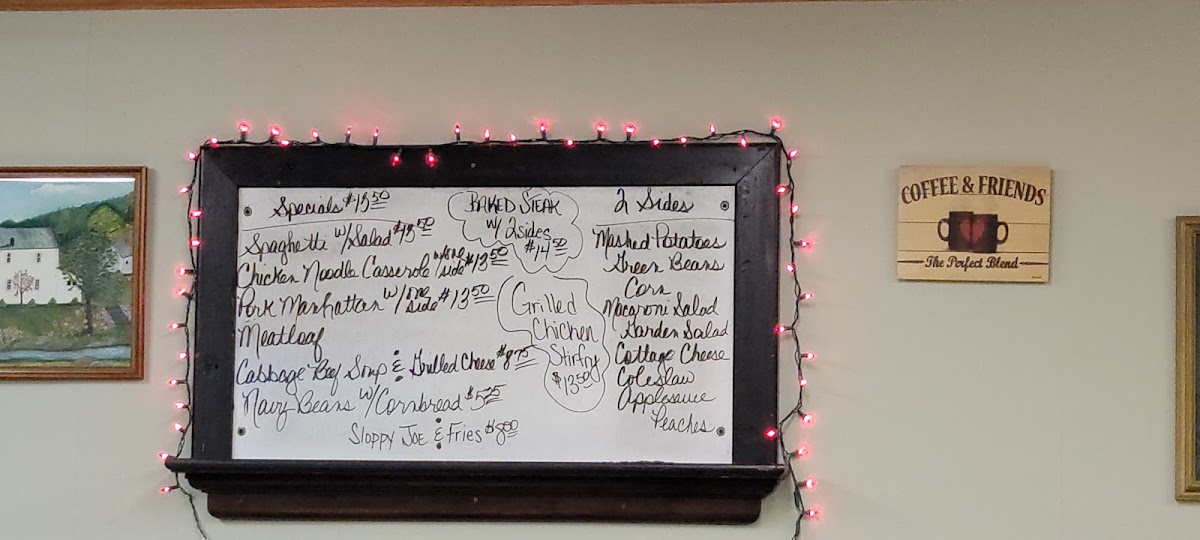 Specials $13.50
Spaghetti w/Salad $13.50
Chicken Noodle Casserole w/one side $13.50
Pork Manhattan w/one side $13.50
Meatloaf
Cabbage Beef Soup & Grilled Cheese $8.75
Navy Beans w/Cornbread $5.25
Sloppy Joe & Fries $8.50
BAKED STEAK
w/ 2 sides
$14.50
Grilled
Chicken
Stirfry
$13.50
2 Sides
Mashed Potatoes
Green Beans
Corn
Macaroni Salad
Garden Salad
Cottage Cheese
Coleslaw
Applesauce
Peaches
COFFEE & FRIENDS
The Perfect Blend